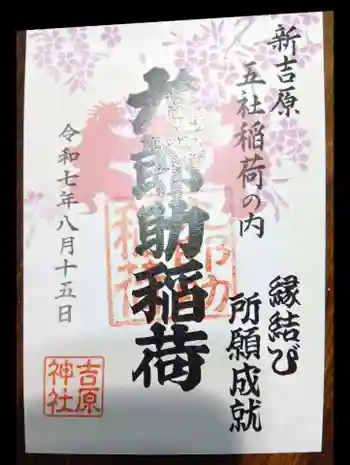 新吉原
五社稲荷の内
縁結び
所願成就
九郎助稲荷
令和七年八月十五日
吉原
神社